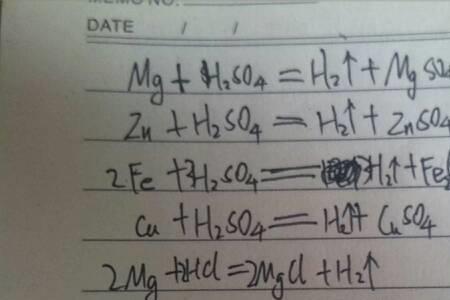 MEMO NO.
DATE / /
Mg + H₂SO₄ = H₂↑ + Mg SO₄
Zn + H₂SO₄ = H₂↑ + ZnSO₄
2Fe + 3H₂SO₄ = H₂↑ + Fe₂
Cu + H₂SO₄ = H₂↑ + CuSO₄
2Mg + 2HCl = 2MgCl + H₂↑